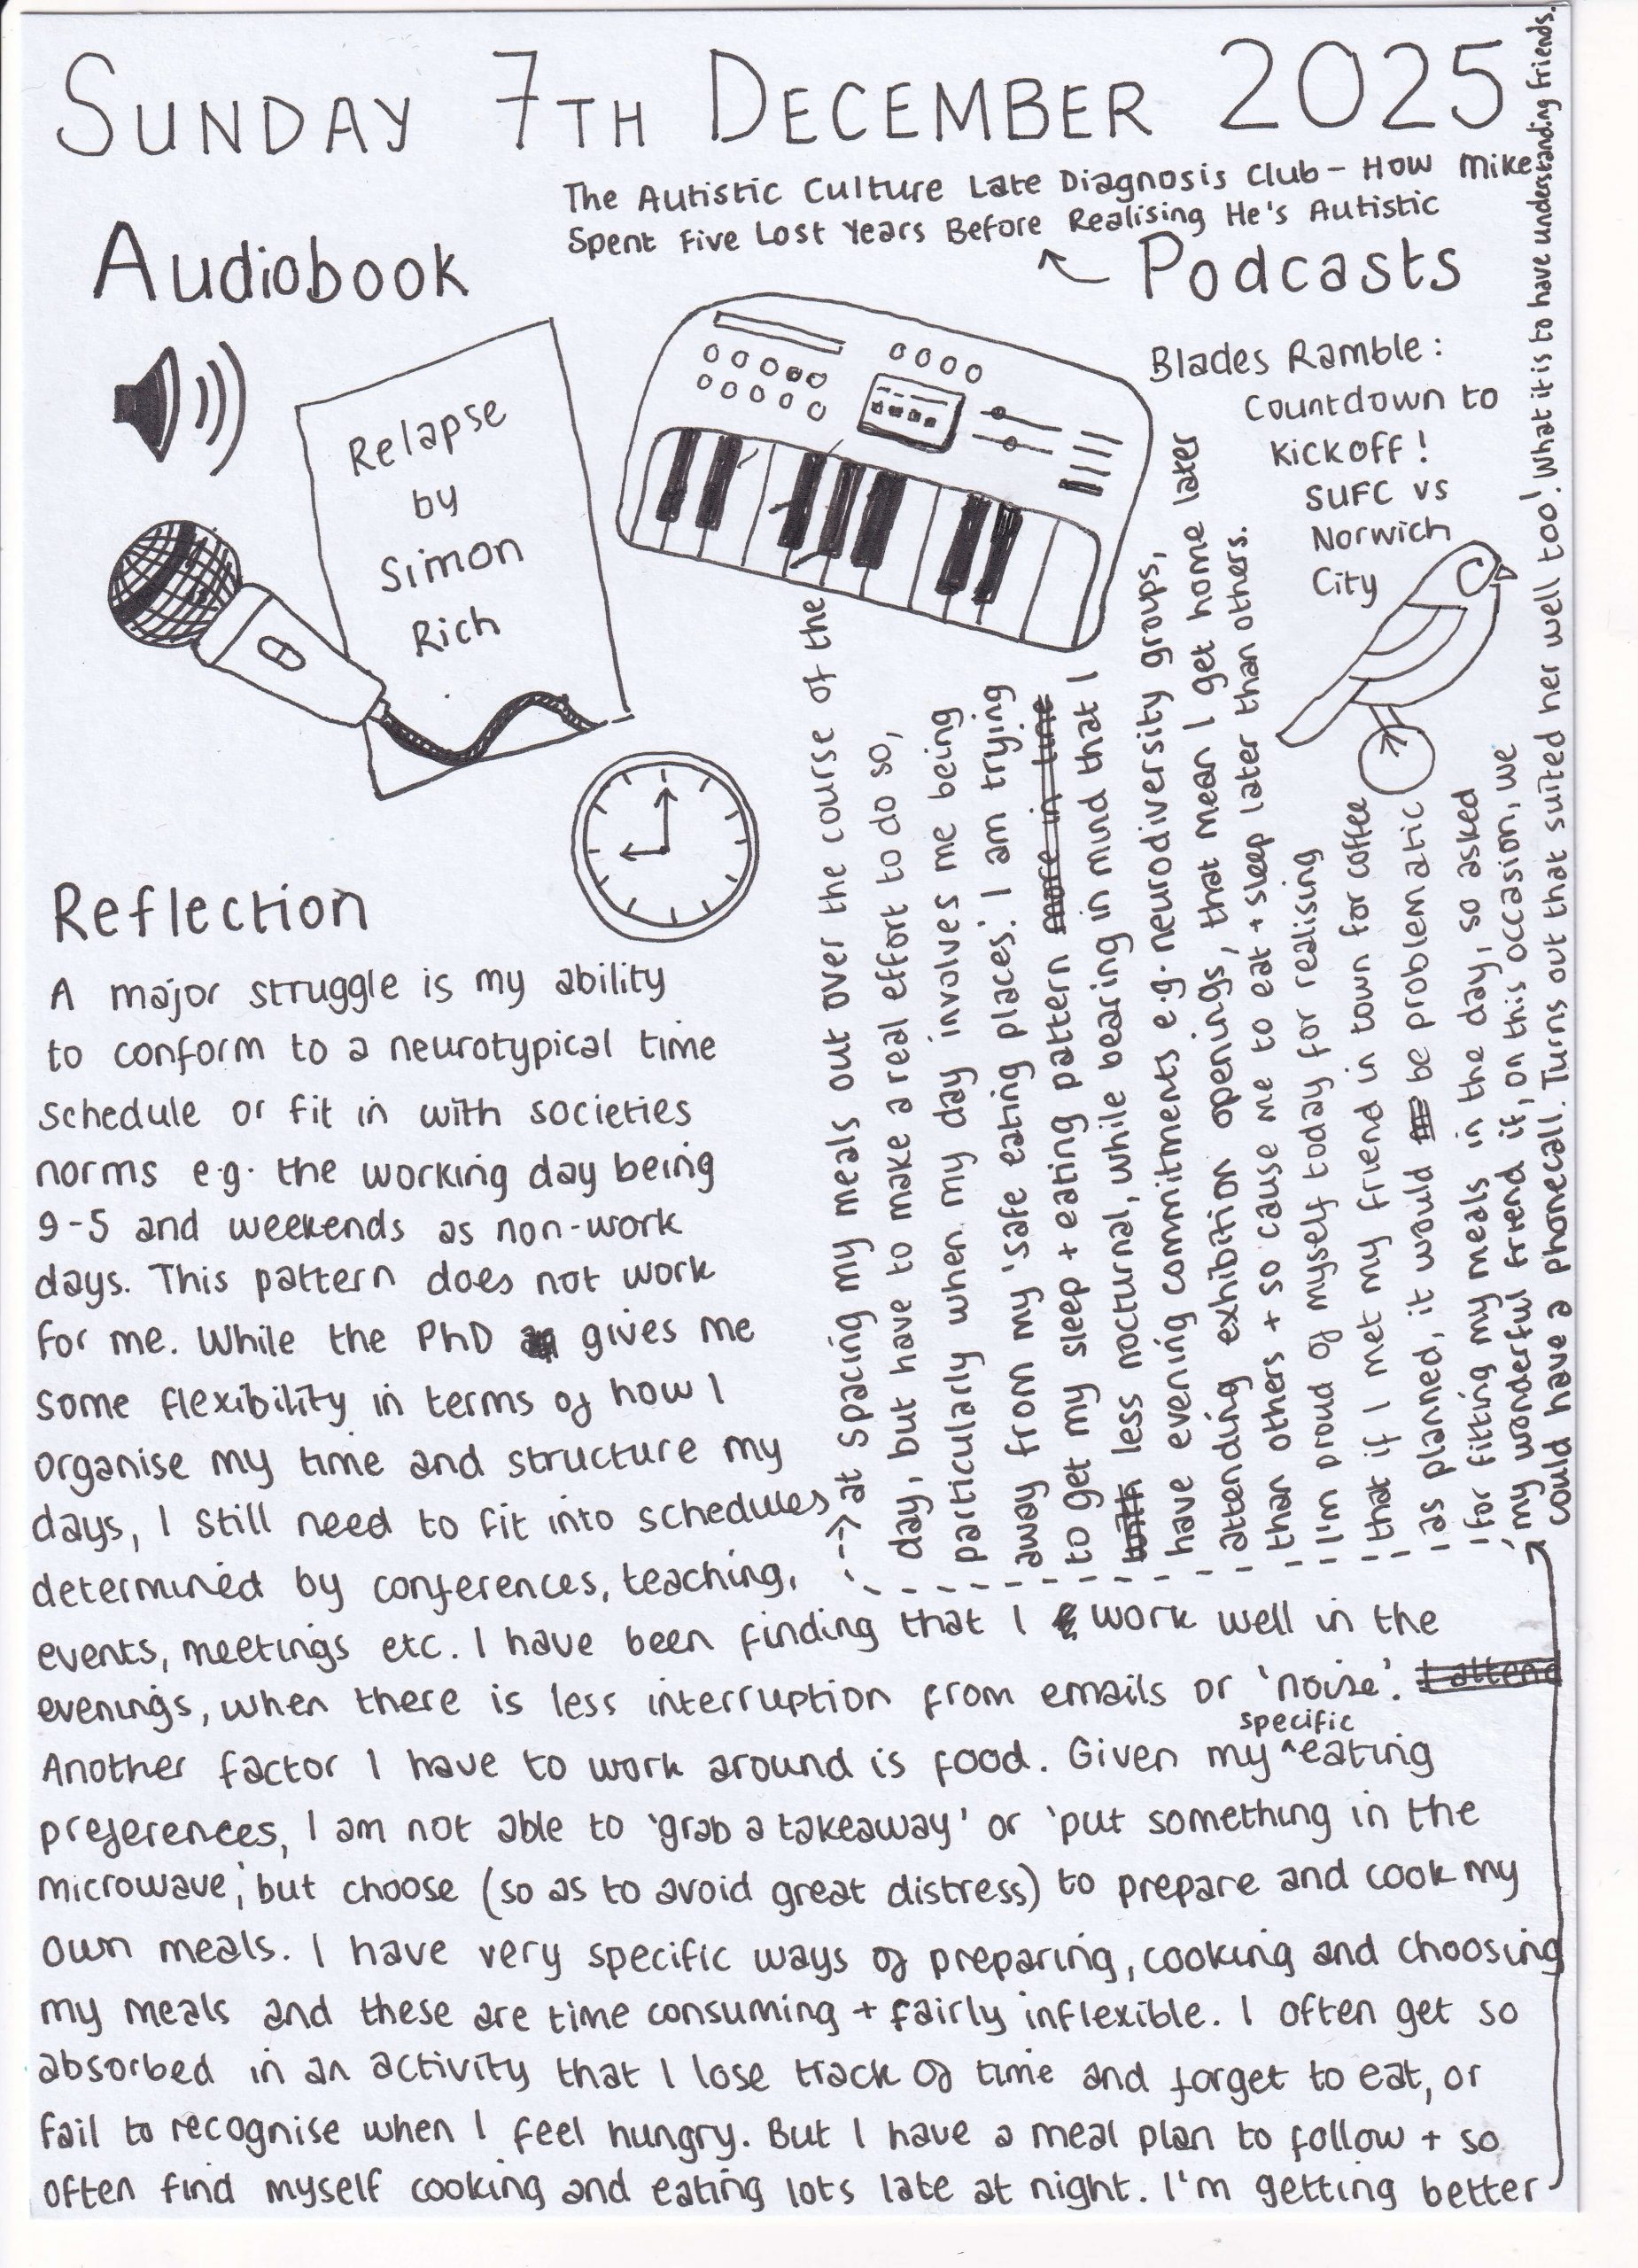 SUNDAY 7TH DECEMBER 2025
The Autistic Culture Late Diagnosis Club - How Mike
Spent Five Lost Years Before Realising He's Autistic
Audiobook
Podcasts
Relapse
by
Simon
Rich
Blades Ramble:
Countdown to
Kickoff!
SUFC vs
Norwich
City
Reflection
A major struggle is my ability
to conform to a neurotypical time
schedule or fit in with societies
norms e.g. the working day being
9-5 and weekends as non-work
days. This pattern does not work
for me. While the PhD gives me
some flexibility in terms of how I
organise my time and structure my
days, I still need to fit into schedules
determined by conferences, teaching,
events, meetings etc. I have been finding that I work well in the
evenings, when there is less interruption from emails or 'noise'. I attend
Another factor I have to work around is food. Given my ^specific eating
preferences, I am not able to 'grab a takeaway' or 'put something in the
microwave', but choose (so as to avoid great distress) to prepare and cook my
own meals. I have very specific ways of preparing, cooking and choosing
my meals and these are time consuming + fairly inflexible. I often get so
absorbed in an activity that I lose track of time and forget to eat, or
fail to recognise when I feel hungry. But I have a meal plan to follow + so
often find myself cooking and eating lots late at night. I'm getting better
at spacing my meals out over the course of the
day, but have to make a real effort to do so,
particularly when my day involves me being
away from my 'safe eating places'. I am trying
to get my sleep + eating pattern more in tune
with less nocturnal, while bearing in mind that I
have evening commitments e.g. neurodiversity groups,
attending exhibition openings, that mean I get home later
than others + so cause me to eat + sleep later than others.
I'm proud of myself today for realising
that if I met my friend in town for coffee
as planned, it would be problematic
for fitting my meals in the day, so asked
my wonderful friend if, on this occasion, we
could have a phonecall. Turns out that suited her well too! What it is to have understanding friends.